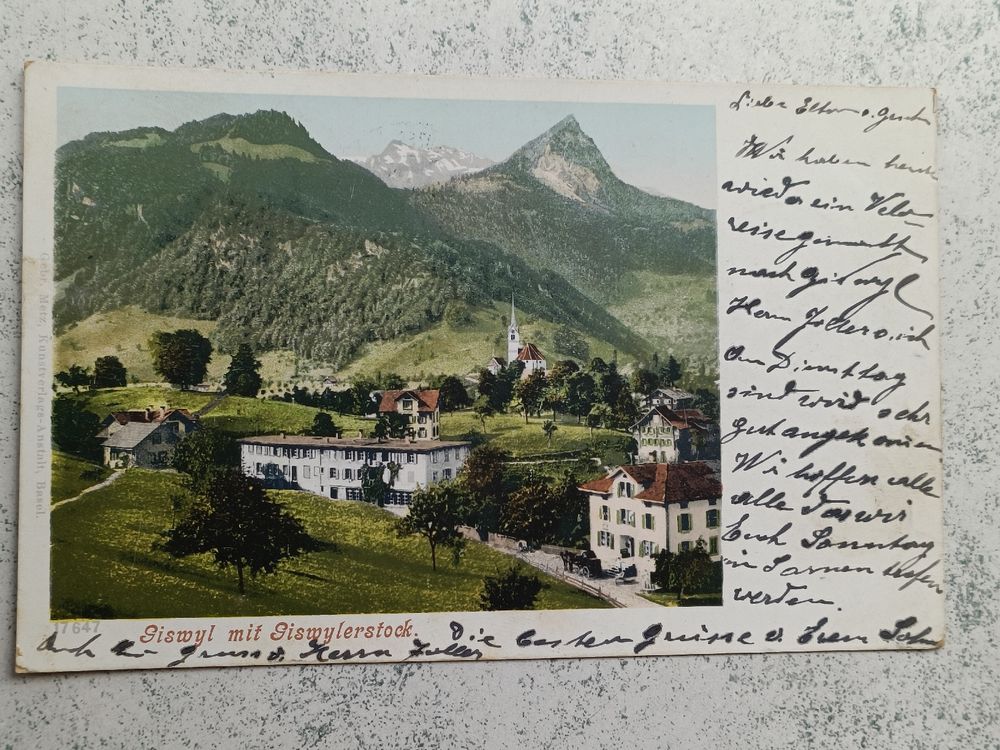 Liebe Eltern u. Gesch
Wir haben heute
wieder ein Velo
reise gemacht
nach Giswyl
Herr Zoller u. ich
Am Dienstag
sind wir sehr
gut angekommen
Wir hoffen alle
alle das wir
Euch Sonntag
in Sarnen treffen
werden.
17647
Giswyl mit Giswylerstock.
Auch ein Gruss v. Herrn Zoller Die besten Grüsse v. Eurem Sohn
Gebr. Metz, Kunstverlags-Anstalt, Basel.